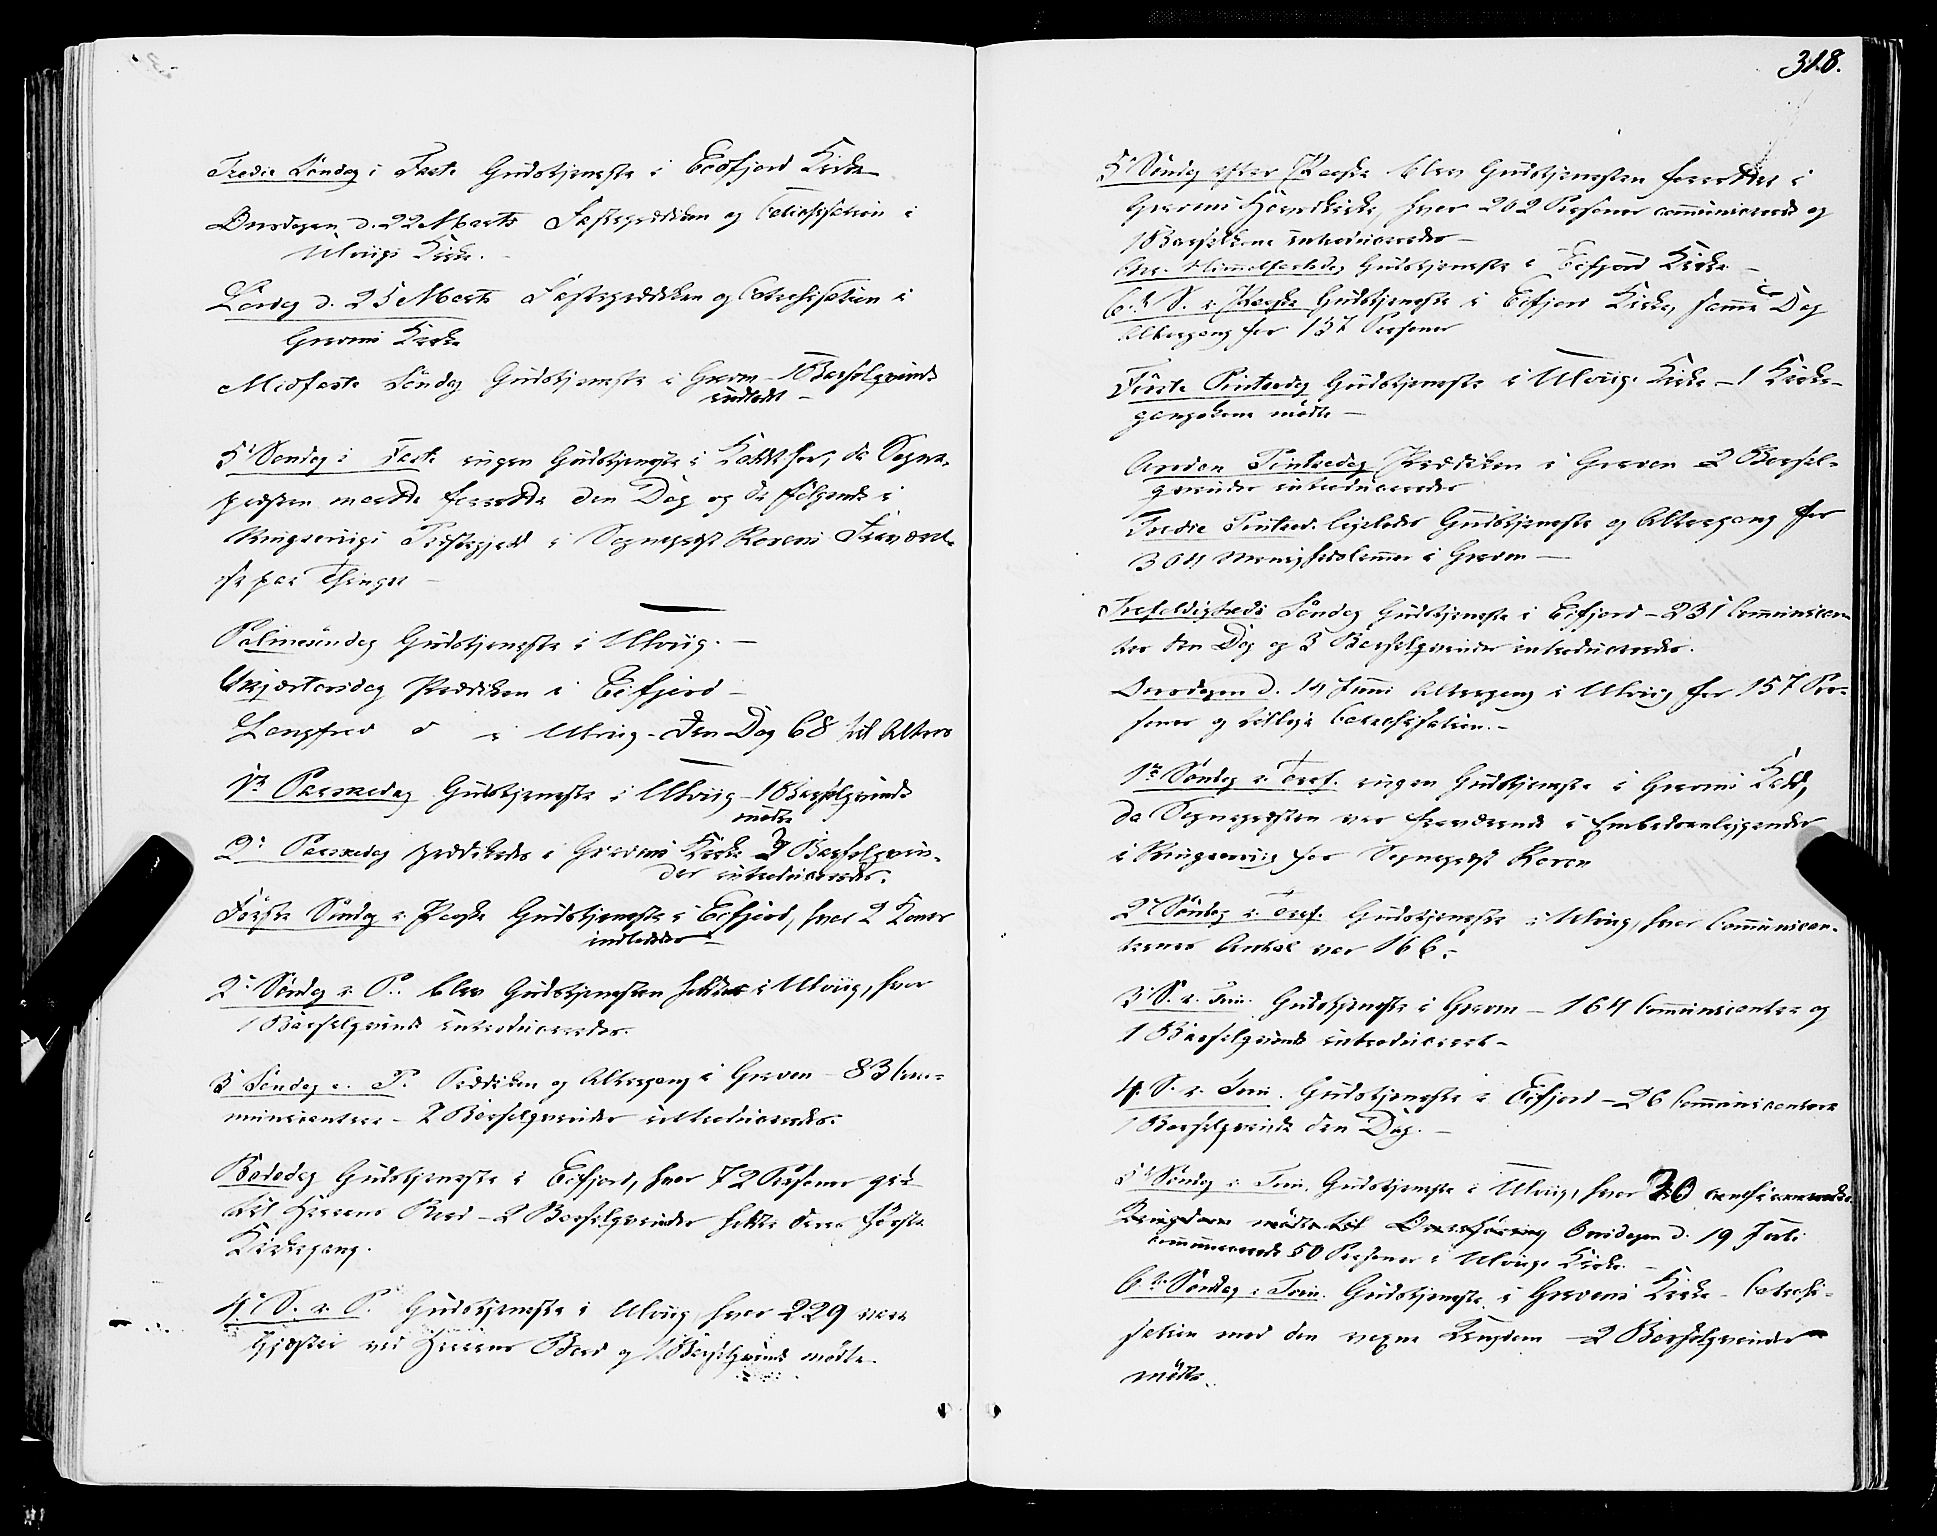 318.
Tredie Søndag i Faste Gudstjeneste i Eedfjord Kirke
Onsdagen d. 22 Marts Fasteprædiken og Catechisation i
Ulvigs Kirke.
Løverdag d. 25 Marts Fasteprædiken og Catechisation i
Gravens Kirke
Midfaste Søndag Gudstjeneste i Graven – 1 Barselqvinde
indledt –
5' Søndag i Faste ingen Gudstjeneste i Kaldet, da Sogne-
præsten maatte forrette den Dag og de følgende i
Præstegjeld i Sognepræst Korens Fraværel-
se paa Thinget –
Palmesøndag Gudstjeneste i Ulvig. –
Skjærtorsdag Prædiken i Eifjord –
Langfred d i Ulvig – den Dag 68 til Alters
1ste Paaskedag Gudstjeneste i Ulvig – 1 Barselqvinde
mødte
2' Paaskedag prædikedes i Gravens Kirke 3 Barselqvin-
der introduceredes.
Første Søndag e. Paaske Gudstjeneste i Eifjord, hvor 2 Koner
indlededes –
2' Søndag e. P. blev Gudstjenesten holdt i Ulvig, hvor
1 Barselqvinde introduceredes.
3' Søndag e. P. Prædiken og Altergang i Graven – 83 Com-
municantere – 2 Barselqvinder introduceredes.
Bededag Gudstjeneste i Eifjord, hvor 72 Personer gik
til Herrens Bord – 2 Barselqvinder holdte deres første
Kirkegang.
4' S. e. P. Gudstjeneste i Ulvig, hvor 229 vare
Gjæster ved Herrens Bord og 1 Barselqvinde mødte.
5' Søndag efter Paaske blev Gudstjenesten forrettet i
Gravens Hovedkirke, hvor 202 Personer communicerede og
1 Barselkone introduceredes –
Chr. Himmelfartsdag Gudstjeneste i Eifjord Kirke –
6te S. e. Paaske Gudstjeneste i Eifjord Kirke, samme Dag
Altergang for 137 Personer
Første Pintsedag Gudstjeneste i Ulvigs Kirke – 1 Kirke-
gangskone mødte –
Anden Pintsedag Prædiken i Graven 2 Barsel-
qvinder introduceredes
Tredie Pintsed. ligeledes Gudstjeneste og Altergang for
304 Menighedslemmer i Graven –
Trefoldigheds Søndag Gudstjeneste i Eifjord – 231 Communican-
ter den Dag og 3 Barselqvinder introduceredes.
Onsdagen d. 14 Juni Altergang i Ulvig for 157 Per-
soner og tillige Catechisation. –
1ste Søndag e. Tref. ingen Gudstjeneste i Gravens Kald,
da Sognepræsten var fraværende i Embedsanliggender
i for Sognepræst Koren
2' Søndag e. Tref. Gudstjeneste i Ulvig, hvor Communican-
ternes Antal var 166. –
3' S. e. Trin. Gudstjeneste i Graven – 164 Communicanter og
1 Barselqvinde introduceret –
4. S. e. Trin. Gudstjeneste i Eifjord – 26 Communicantere
1 Barselqvinde den Dag. –
5te Søndag e. Trin. Gudstjeneste i Ulvig, hvor 20
Ungdom mødte til Onsdagen d. 19 Juli
communicerede 50 Personer i Ulvigs Kirke. –
6te Søndag e. Trin. Gudstjeneste i Gravens Kirke – Catechi-
sation med den voxne Ungdom – 2 Barselqvinder
mødte.